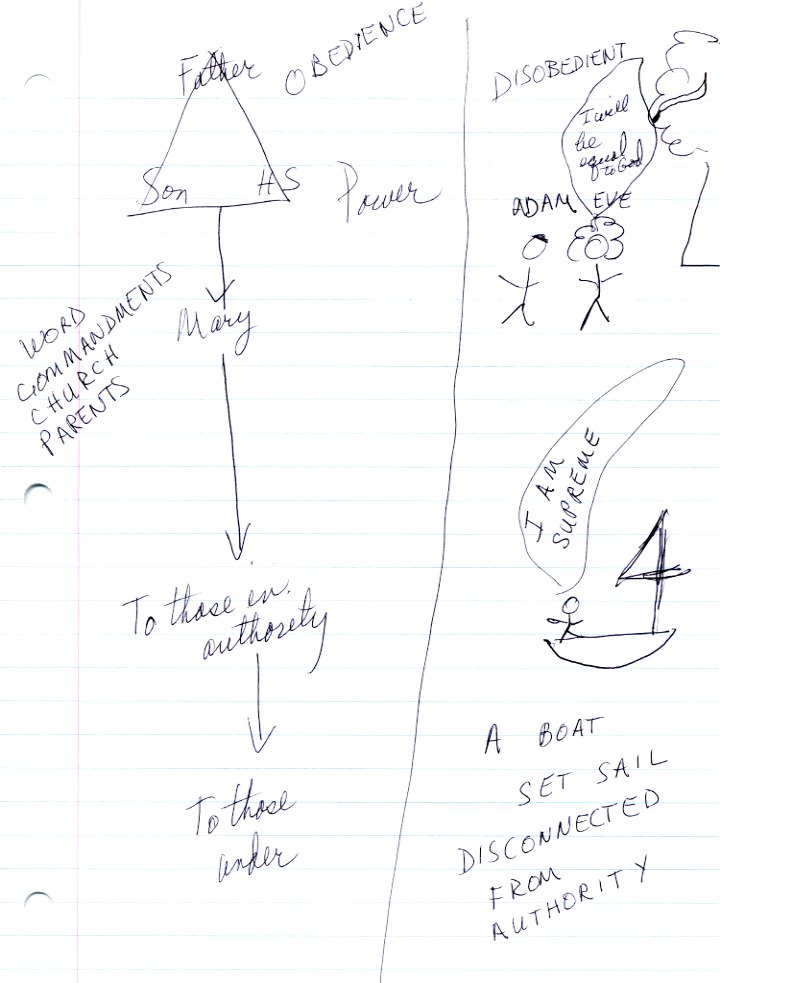 Father
OBEDIENCE
Son
HS
Power
Mary
WORD
COMMANDMENTS
CHURCH
PARENTS
To those in
authority
To those
under
DISOBEDIENT
I will
be
equal
to God
ADAM EVE
I AM
SUPREME
A BOAT
SET SAIL
DISCONNECTED
FROM
AUTHORITY